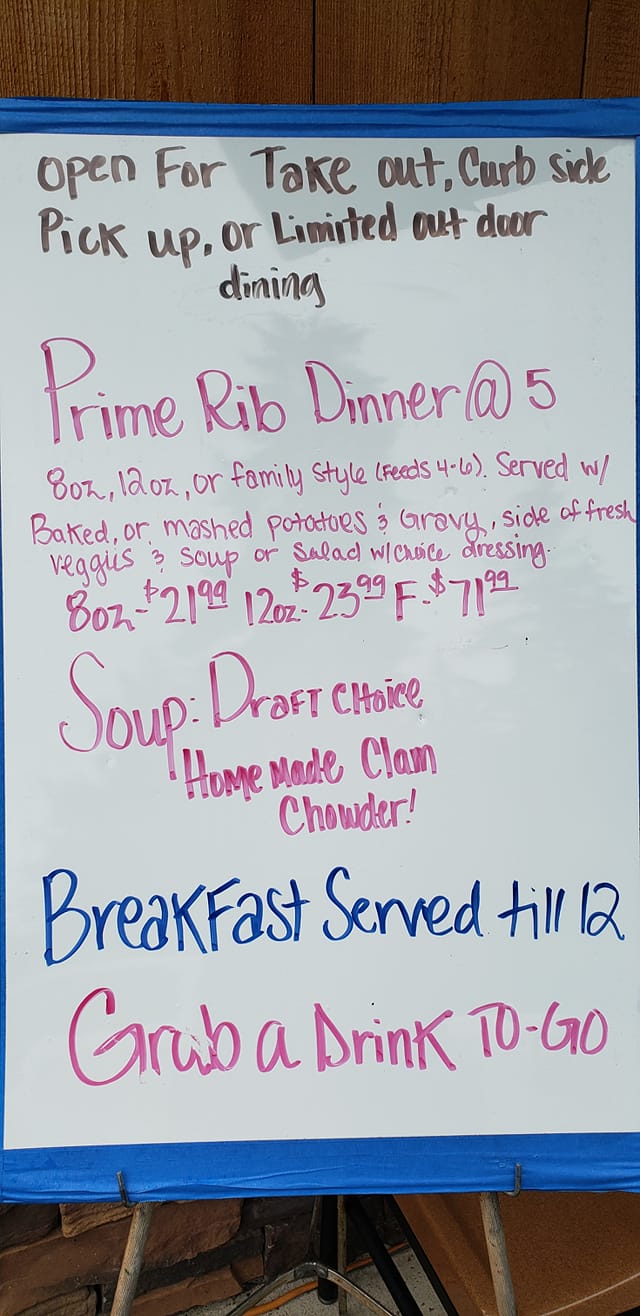 Open For Take out, Curb side
Pick up, or Limited out door
dining
Prime Rib Dinner @ 5
8oz, 12oz, or family style (Feeds 4-6). Served w/
Baked, or mashed potatoes & Gravy, side of fresh
veggies & soup or salad w/choice dressing.
8oz-$21.99 12oz-$23.99 F-$71.99
Soup: Draft Choice
Home Made Clam
Chowder!
Breakfast Served till 12
Grab a Drink TO-GO